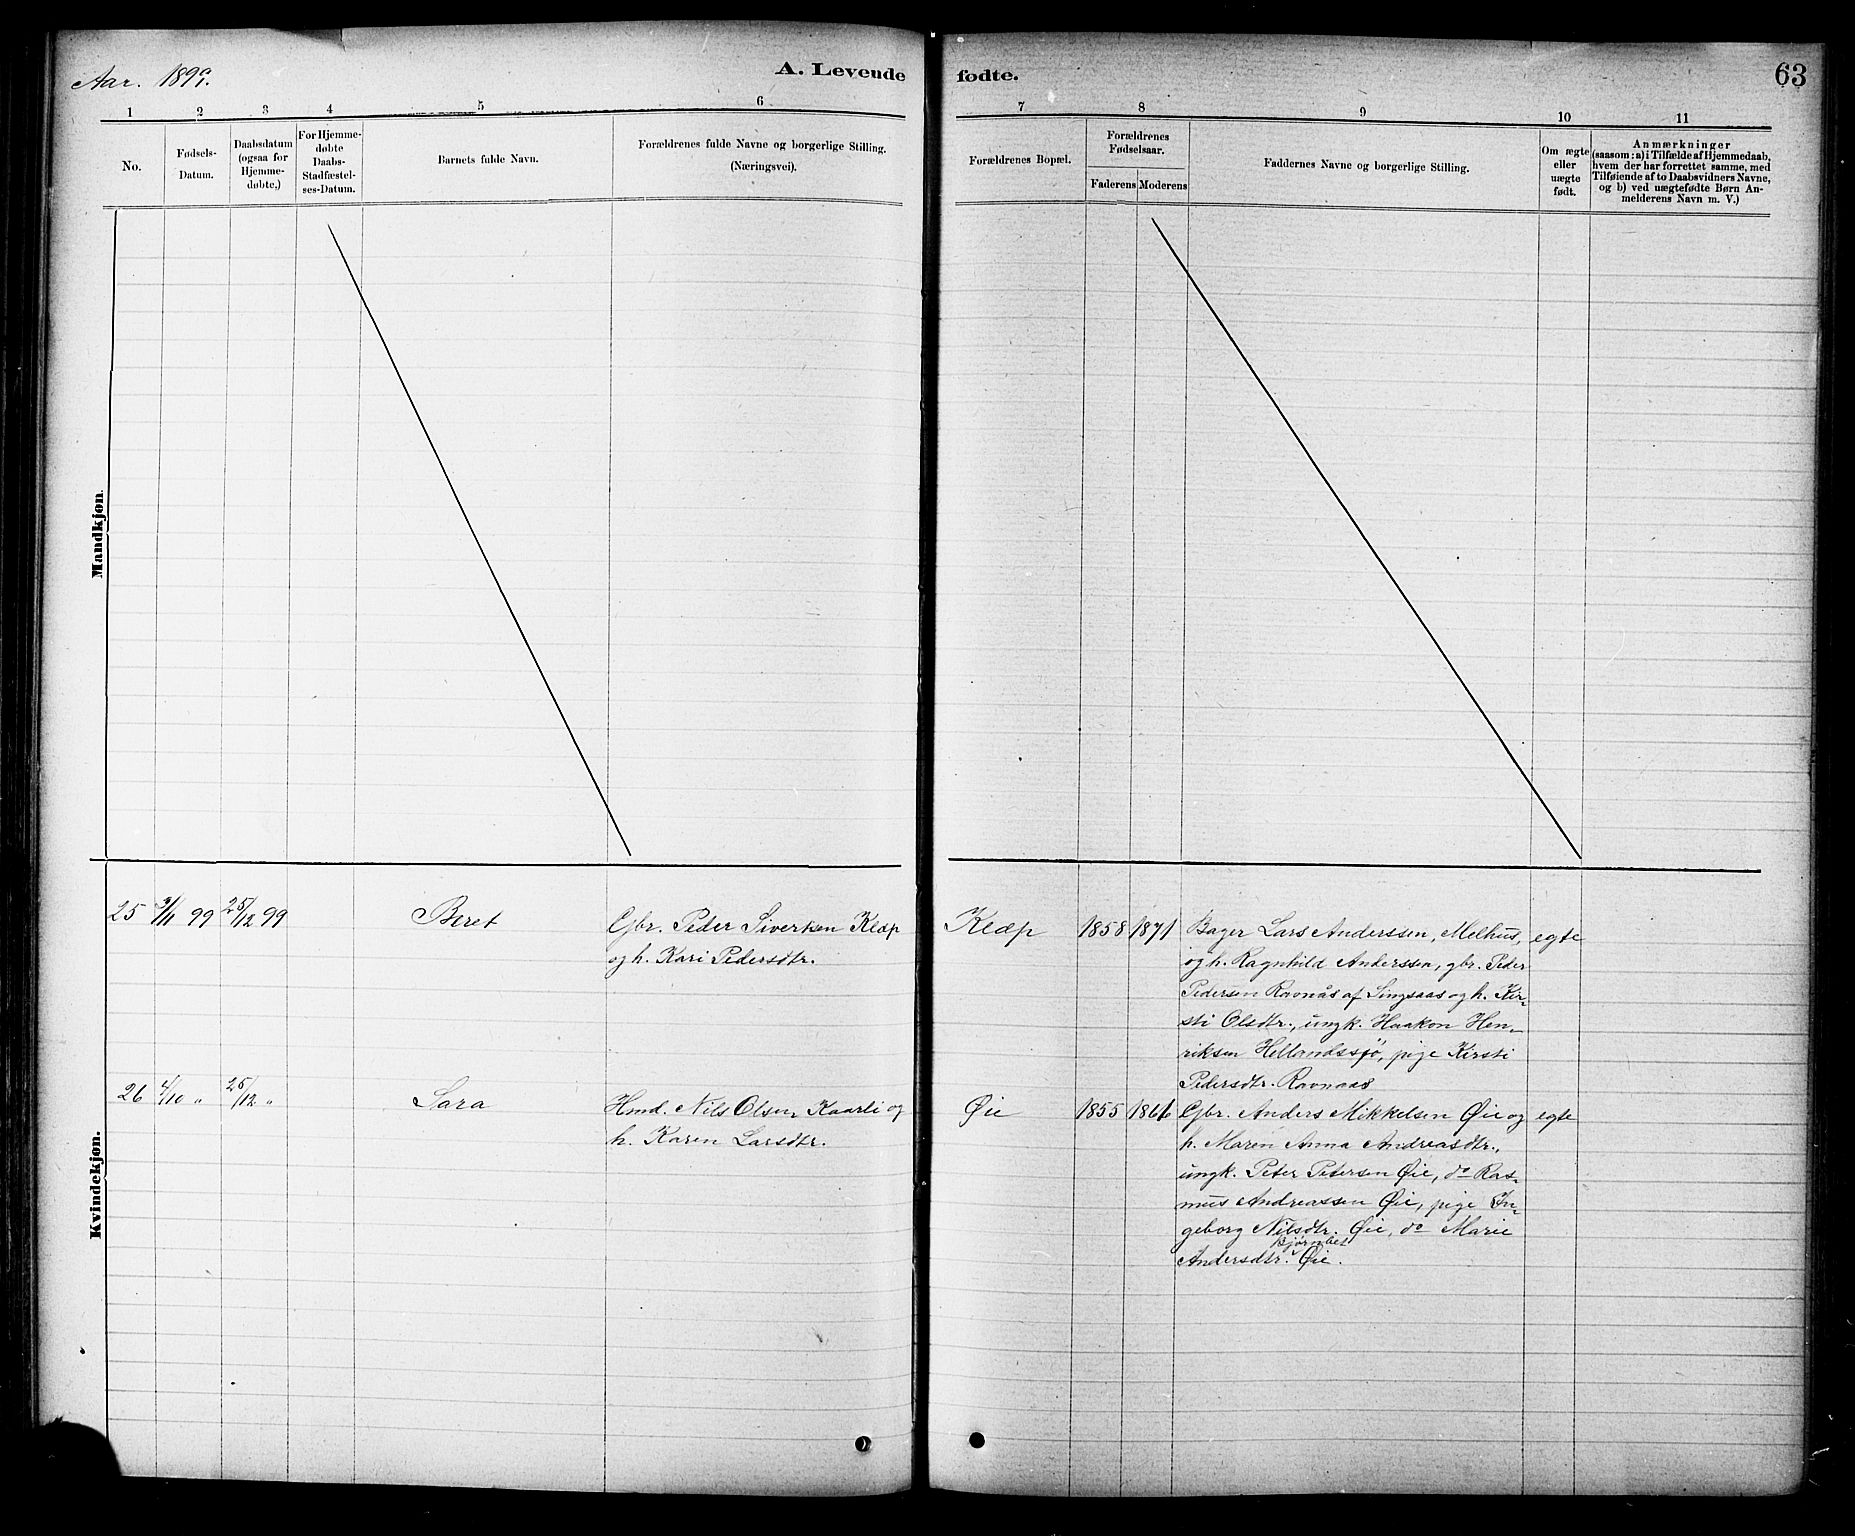 Aar. 1899.
A. Levende fødte.
63
1 2 3 4 5 6 7 8 9 10 11
No.
Fødsels-
Datum.
Daabsdatum
(ogsaa for
Hjemme-
døbte.)
For Hjemme-
døbte
Daabs-
Stadfæstel-
ses-Datum.
Barnets fulde Navn.
Forældrenes fulde Navne og borgerlige Stilling.
(Næringsvei).
Forældrenes Bopæl.
Forældrenes
Fødselsaar.
Faderens Moderens
Faddernes Navne og borgerlige Stilling.
Om ægte
eller
uægte
født.
Anmærkninger
(saasom: a) i Tilfælde af Hjemmedaab,
hvem der har forrettet samme, med
Tilføiende af to Daabsvidners Navne,
og b) ved uægtefødte Børn An-
melderens Navn m. V.)
Mandkjøn.
Kvindekjøn.
25 3/11 99 25/12 99 Beret
Gbr. Peder Sivertsen Klæp
og h. Kari Pedersdtr.
Klæp 1858 1871
Bager Lars Anderssen, Melhus,
og h. Ragnhild Anderssen, gbr. Peder
Pedersen Ravnås af Singsaas og h. Kir-
sti Olsdtr., ungk. Haakon Hen-
riksen Hellandssjø, pige Kirsti
Pedersdtr. Ravnaas
egte
26 4/10 " 25/12 " Sara
Hmd. Nils Olsen Kaarli og
h. Karen Larsdtr.
Øie 1855 1866
Gbr. Anders Mikkelsen Øie og
h. Maren Anna Andreasdtr.,
ungk. Peter Petersen Øie, do Ras-
mus Andreassen Øie, pige In-
geborg Nilsdtr. Øie, do Marie
Andersdtr. Øie.
egte